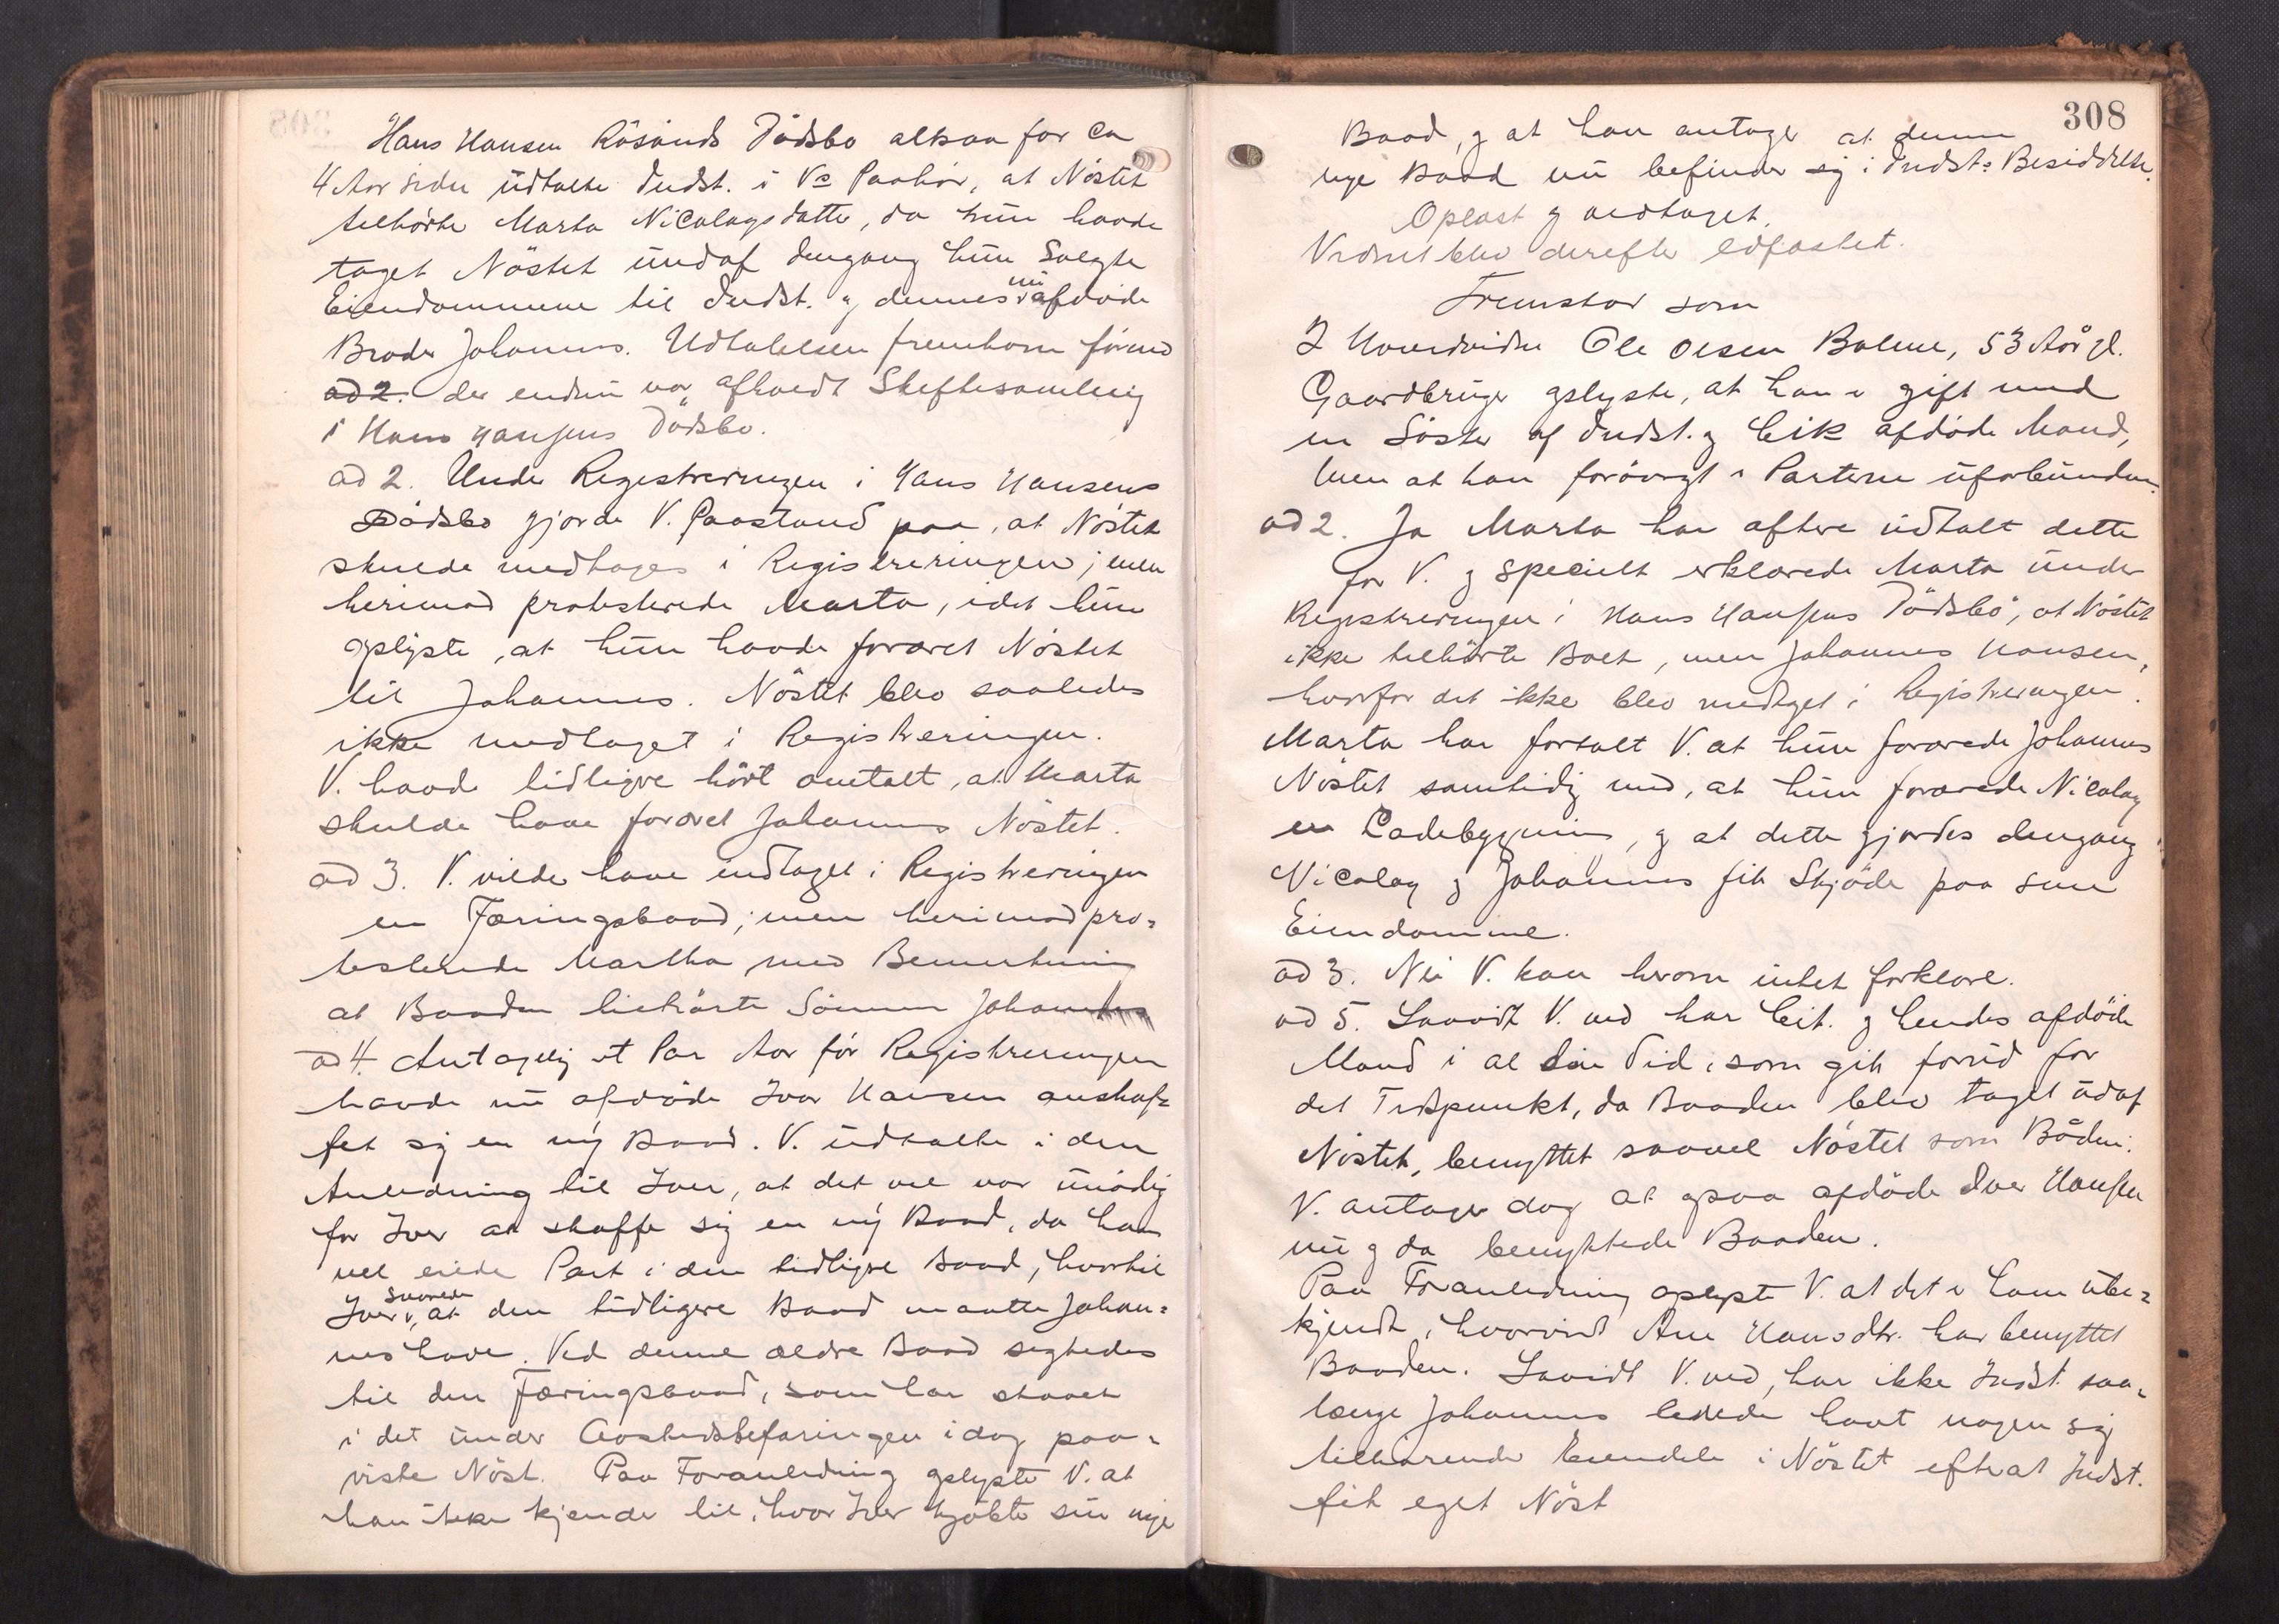 Hans Hansen Røsands Dødsbo altsaa for ca
4 Aar siden udtalte Indst. i Vs Paahør, at Nøstet
tilhørte Marta Nicolaysdatter, da hun havde
taget Nøstet undaf dengang hun Solgte
Eiendommene til Indst. og dennes nu afdøde
Broder Johannes. Udtalelsen fremkom førend
ad 2. der endnu var afholdt Skiftesamling
i Hans Hansens Dødsbo.
ad 2. Under Registreringen i Hans Hansens
Dødsbo gjorde V. Paastand paa, at Nøstet
skulde medtages i Registreringen; men
herimod protesterede Marta, idet hun
oplyste, at hun havde foræret Nøstet
til Johannes. Nøstet blev saaledes
ikke medtaget i Registreringen.
V. havde tidligere hørt omtalt, at Marta
skulde have foræret Johannes Nøstet.
ad 3. V. vilde have indtaget i Registreringen
en Færingsbaad; men herimod pro-
testerede Martha med Bemerkning
at Baaden tilhørte Sønnen Johannes
ad 4. Antagelig et Par Aar før Registreringen
havde nu afdøde Iver Hansen anskaf-
fet sig en ny Baad. V. udtalte i den
Anledning til Iver, at det vel var unødig
for Iver at skaffe sig en ny Baad, da han
vel eiede Part i den tidligere Baad, hvortil
Iver svarede, at den tidligere Baad maatte Johan-
nes have. Ved denne ældre Baad sigtedes
til den Færingsbaad, som har staaet
i det under Aastedsbefaringen idag paa-
viste Nøst. Paa Foranledning oplyste V. at
han ikke kjender til, hvor Iver kjøbte sin nye
308
Baad, og at han antager at denne
nye Baad nu befinder sig i Indst.s Besiddelse.
Oplæst og vedtaget.
Vidnet blev derefter edfæstet.
Fremstod som
2 Hovedvidne Ole Olsen Balene, 53 Aar gl.
Gaardbruger oplyste, at han er gift med
en Søster af Indst. og Cit. afdøde Mand,
men at han forøvrigt er Parterne uforbunden.
ad 2. Ja Marta har oftere udtalt dette
for V. og specielt erklærede Marta under
Registreringen i Hans Hansens Dødsbo, at Nøstet
ikke tilhørte Boet, men Johannes Hansen,
hvorfor det ikke blev medtaget i Registreringen.
Marta har fortalt V. at hun forærede Johannes
Nøstet samtidig med, at hun forærede Nicolay
en Ladebygning, og at dette gjordes dengang
Nicolay og Johannes fik Skjøde paa sine
Eiendomme.
ad 3. Nei V. kan herom intet forklare.
ad 5. Saavidt V. ved har Cit. og hendes afdøde
Mand i al sin Tid, som gik forud for
det Tidspunkt, da Baaden blev taget udaf
Nøstet, benyttet saavel Nøstet som Baaden.
V. antager dog at ogsaa afdøde Iver Hansen
nu og da benyttede Baaden.
Paa Foranledning oplyste V. at det er ham ube-
kjendt, hvorvidt Ane Hansdtr. har benyttet
Baaden. Saavidt V. ved, har ikke Indst. saa-
længe Johannes levede havt nogen sig
tilhørende Eiendele i Nøstet efterat Indst.
fik eget Nøst